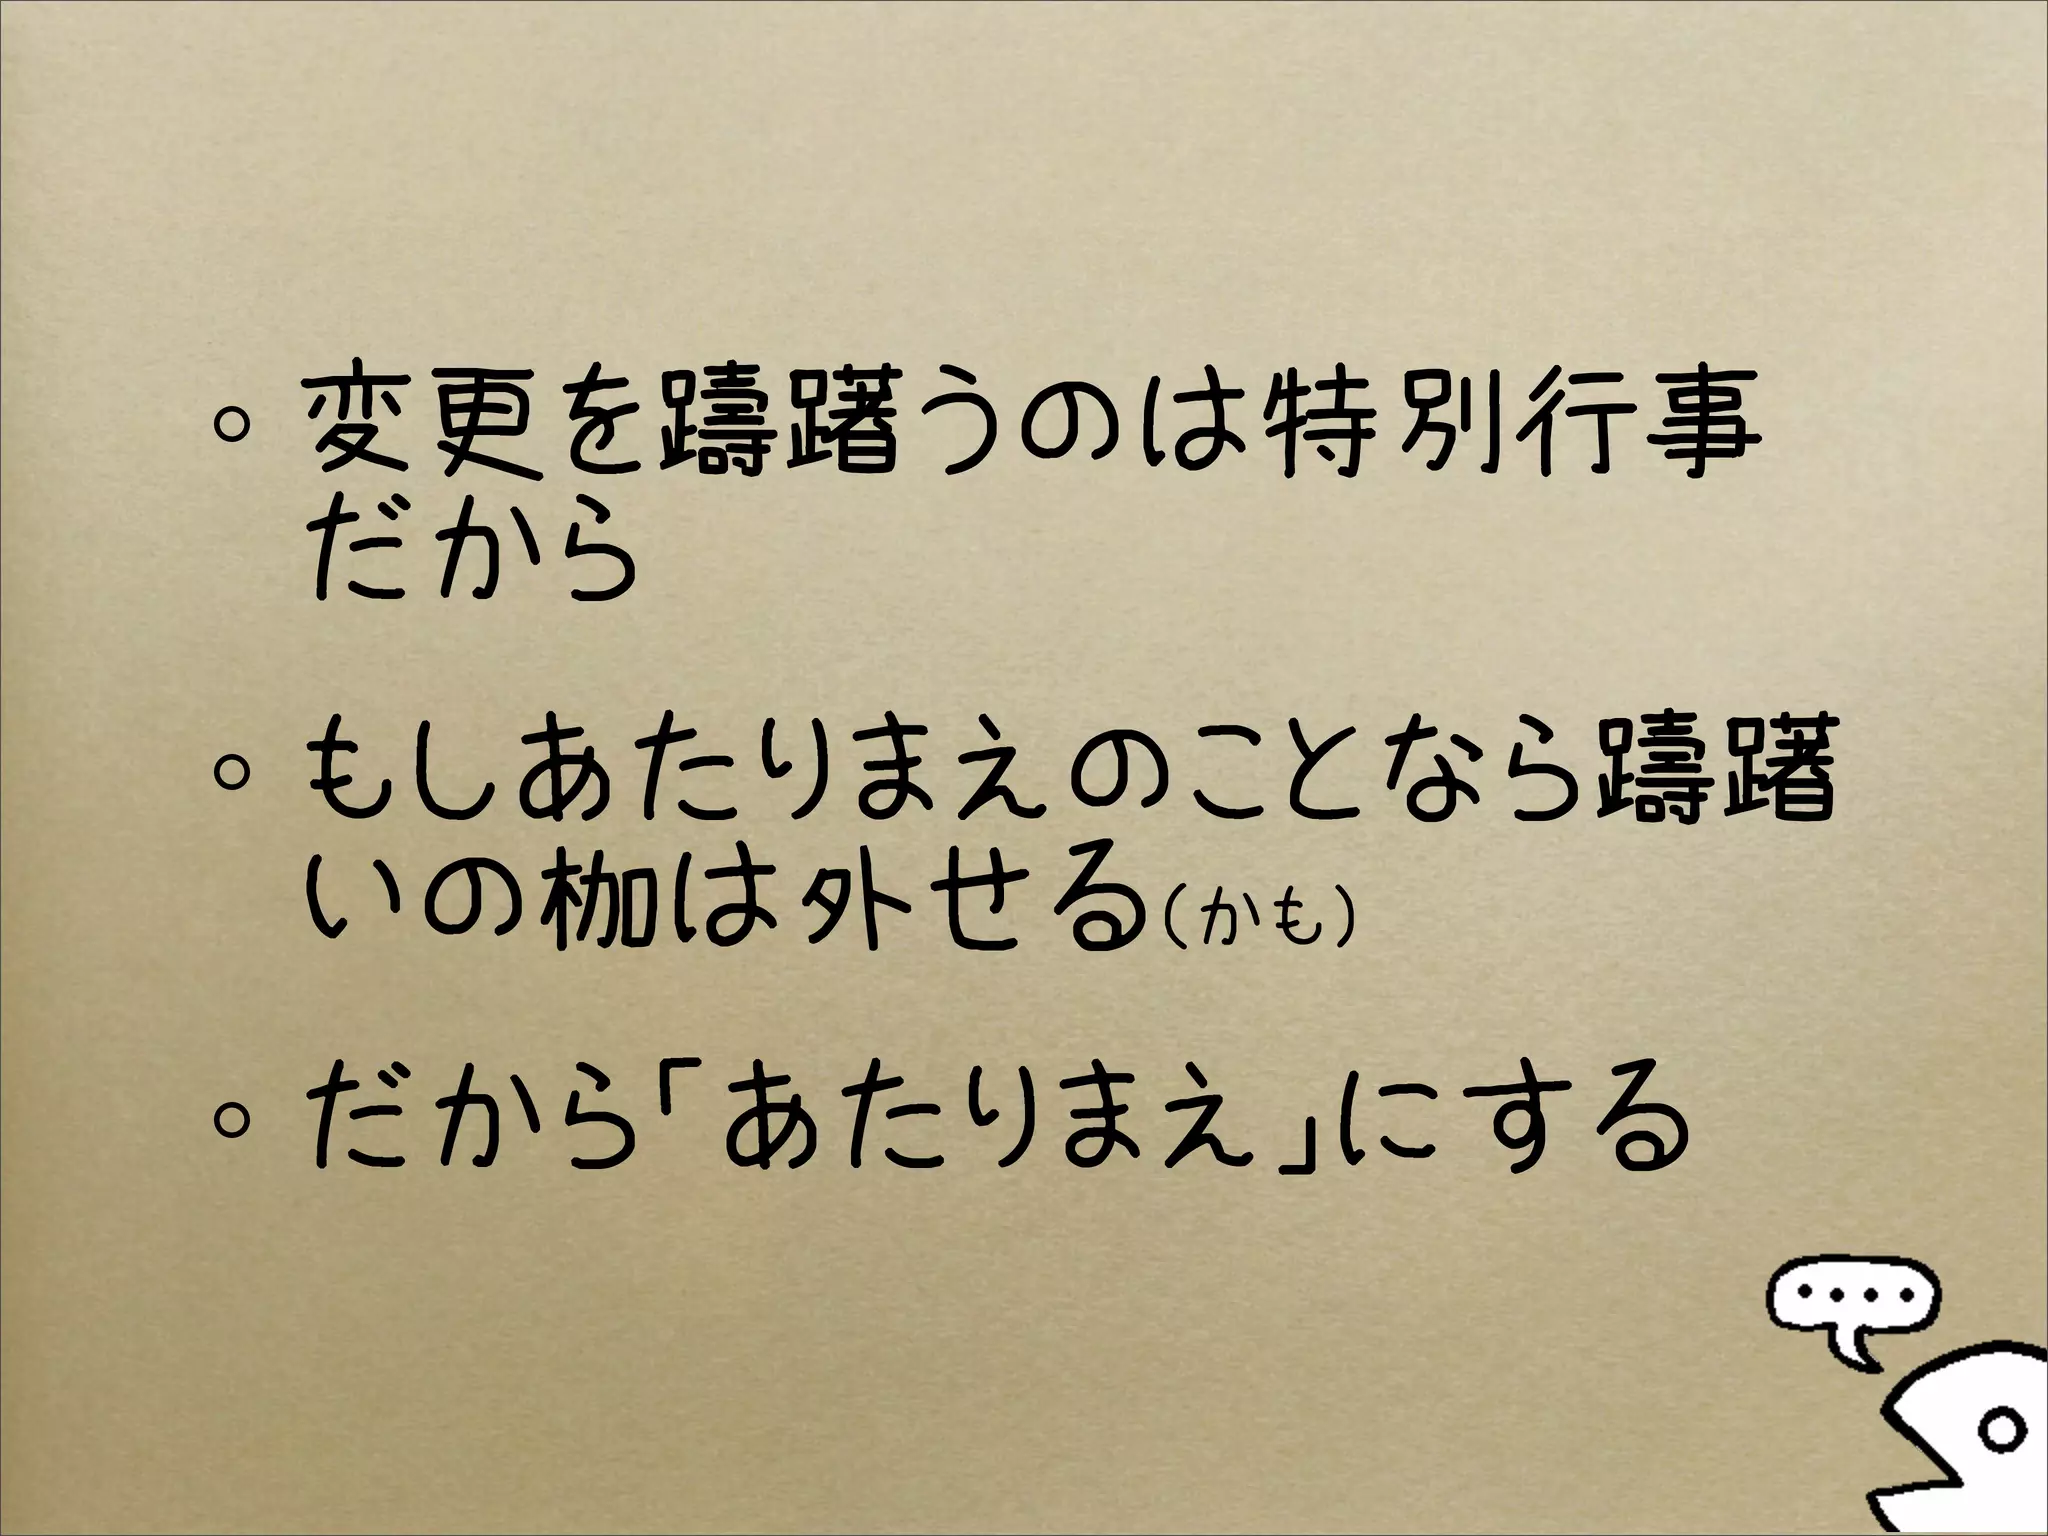 。変更を躊躇うのは特別行事
だから
。もしあたりまえのことなら躊躇
いの枷は外せる(かも)
。だから「あたりまえ」にする